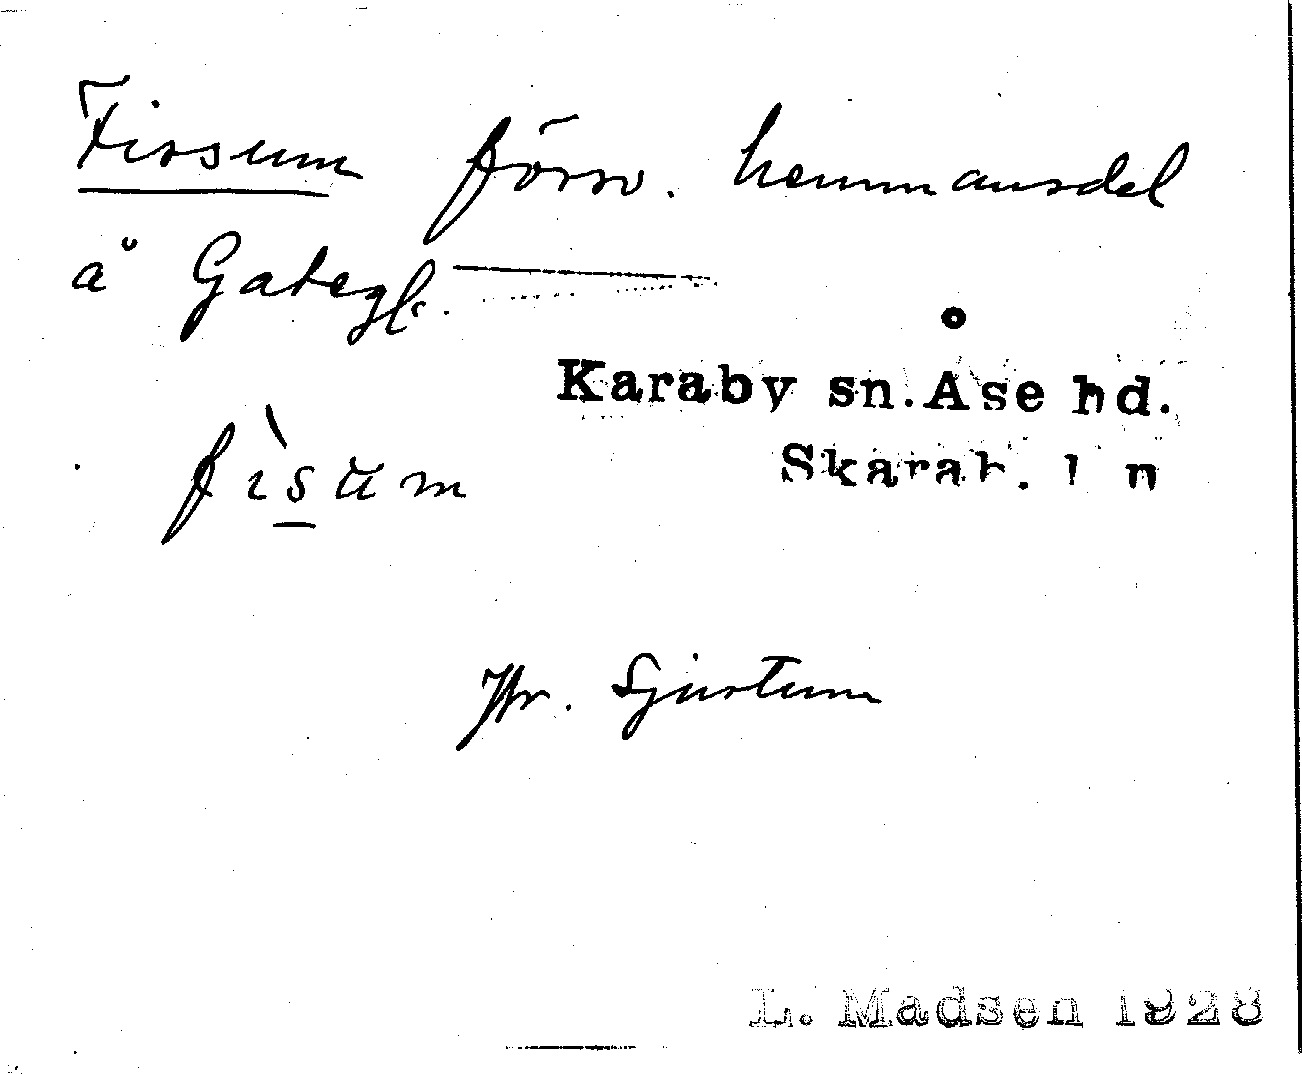 Fissum försv. hemmansdel
å Gategb.
Karaby sn. Åse hd.
Skarab. l n
fìsum
Jfr. Sjustum
L. Madsen 1928